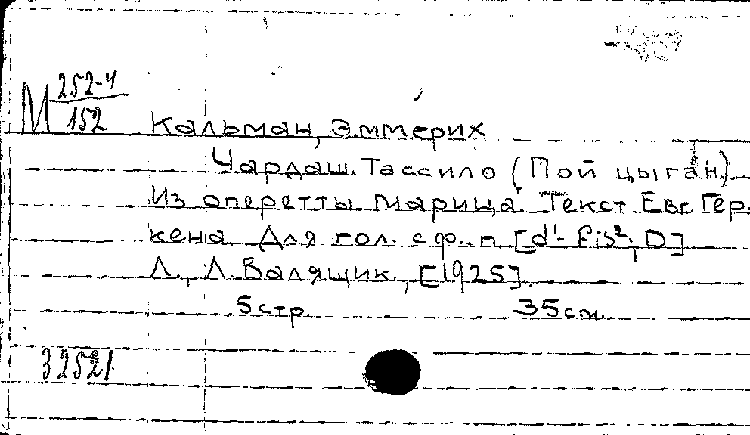 М 252-4
152
Кальман, Эммерих
Чардаш Тассило (Пой цыган)
Из оперетты "Марица". Текст Евг. Гер-
кена Для гол. с ф.-п [d¹- fis², D]
Л., Л. Валящик, [1925]
5 стр 35 см
32521